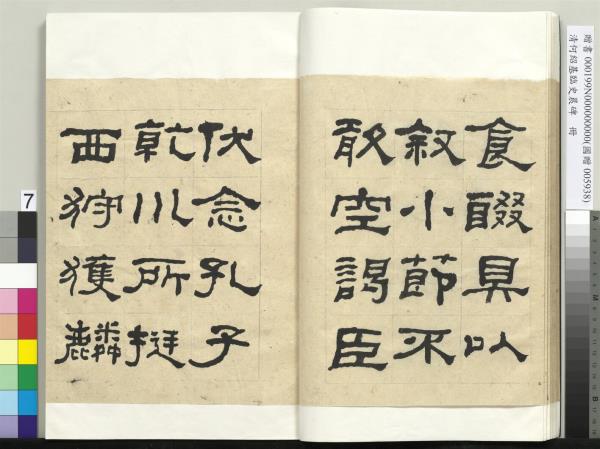 食醊具以
叙小節不
敢空謁臣
伏念孔子
乹川所挺
西狩獲麟
贈書 000199N000000000(國贈 005938)
清何紹基臨史晨碑 冊
7
A
M
B